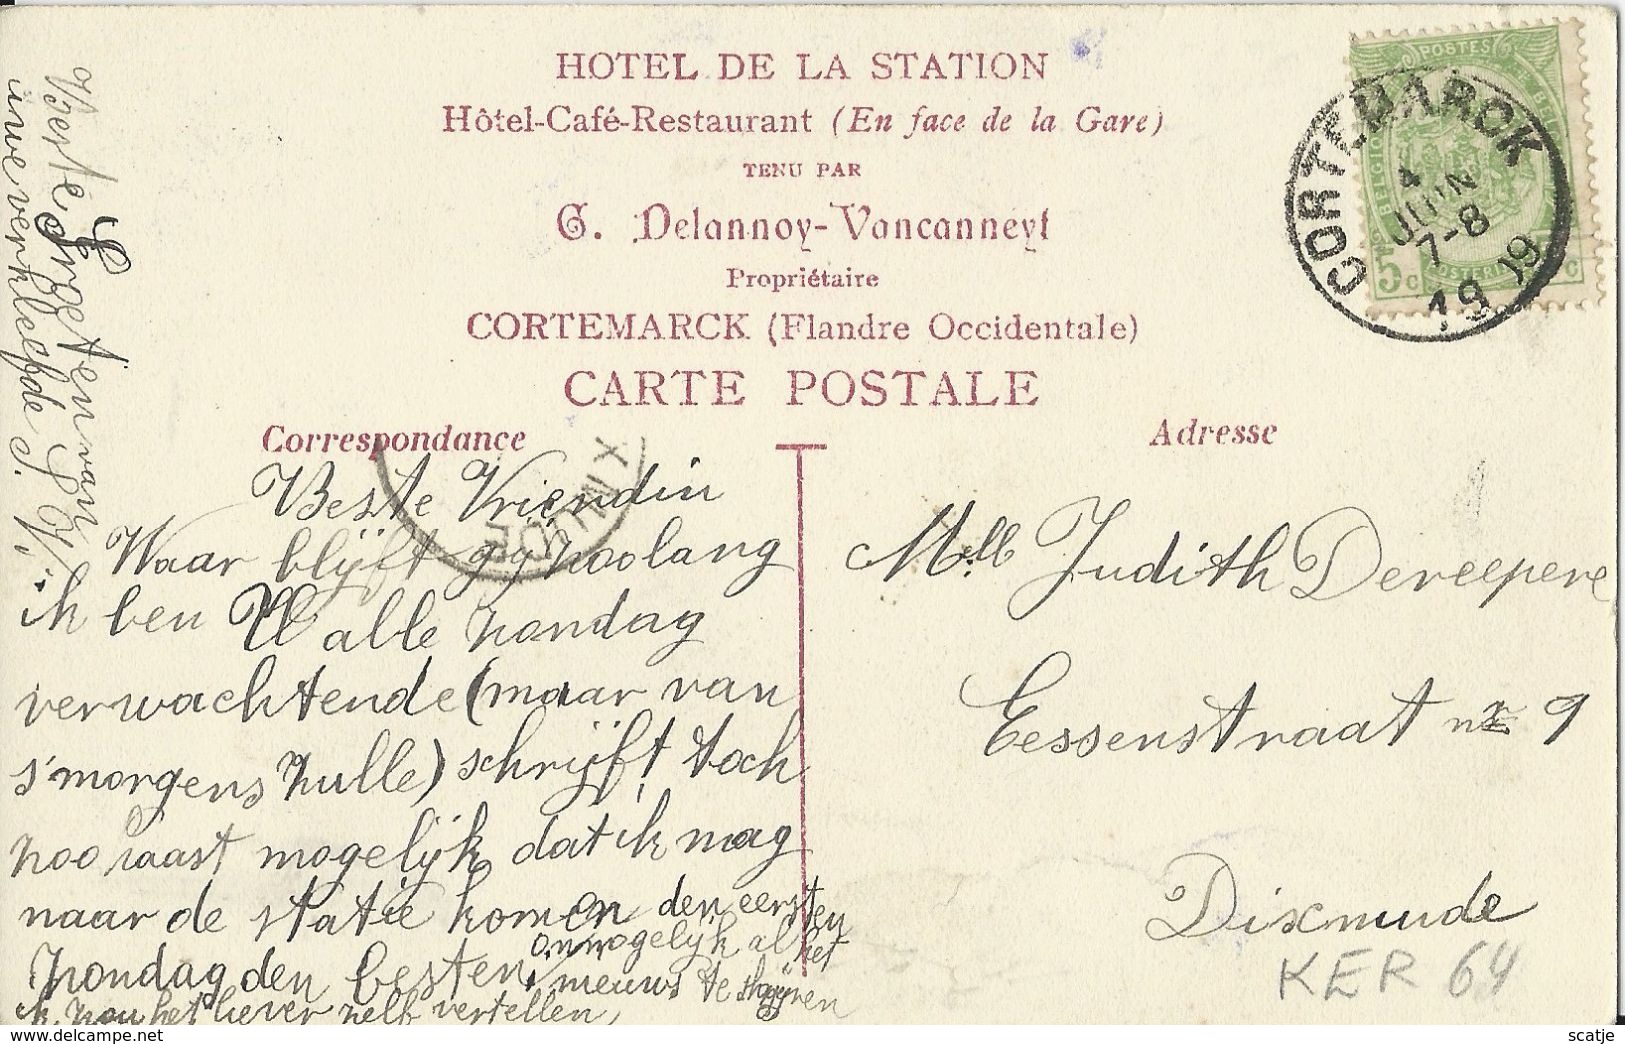 HOTEL DE LA STATION
Hôtel-Café-Restaurant (En face de la Gare)
TENU PAR
G. Delannoy-Vancanneyt
Propriétaire
CORTEMARCK (Flandre Occidentale)
CARTE POSTALE
Correspondance
Adresse
POSTES
BELGIQUE
5 c
CORTEMARCK
4
JUIN
7-8
1909
Beste Vriendin
Waar blijft gij zoolang
ik ben U alle zondag
verwachtende (maar van
s'morgens zulle) schrijft toch
zoo raast mogelijk dat ik mag
naar de statie komen den eersten
zondag den besten.
onmogelijk al het
nieuws te
ik zou het liever zelf vertellen,
Beste Groeten van
uwe verkleefde
Mlle Judith Dereepere
Eessenstraat nr 9
Dixmude
KER 64
scatje